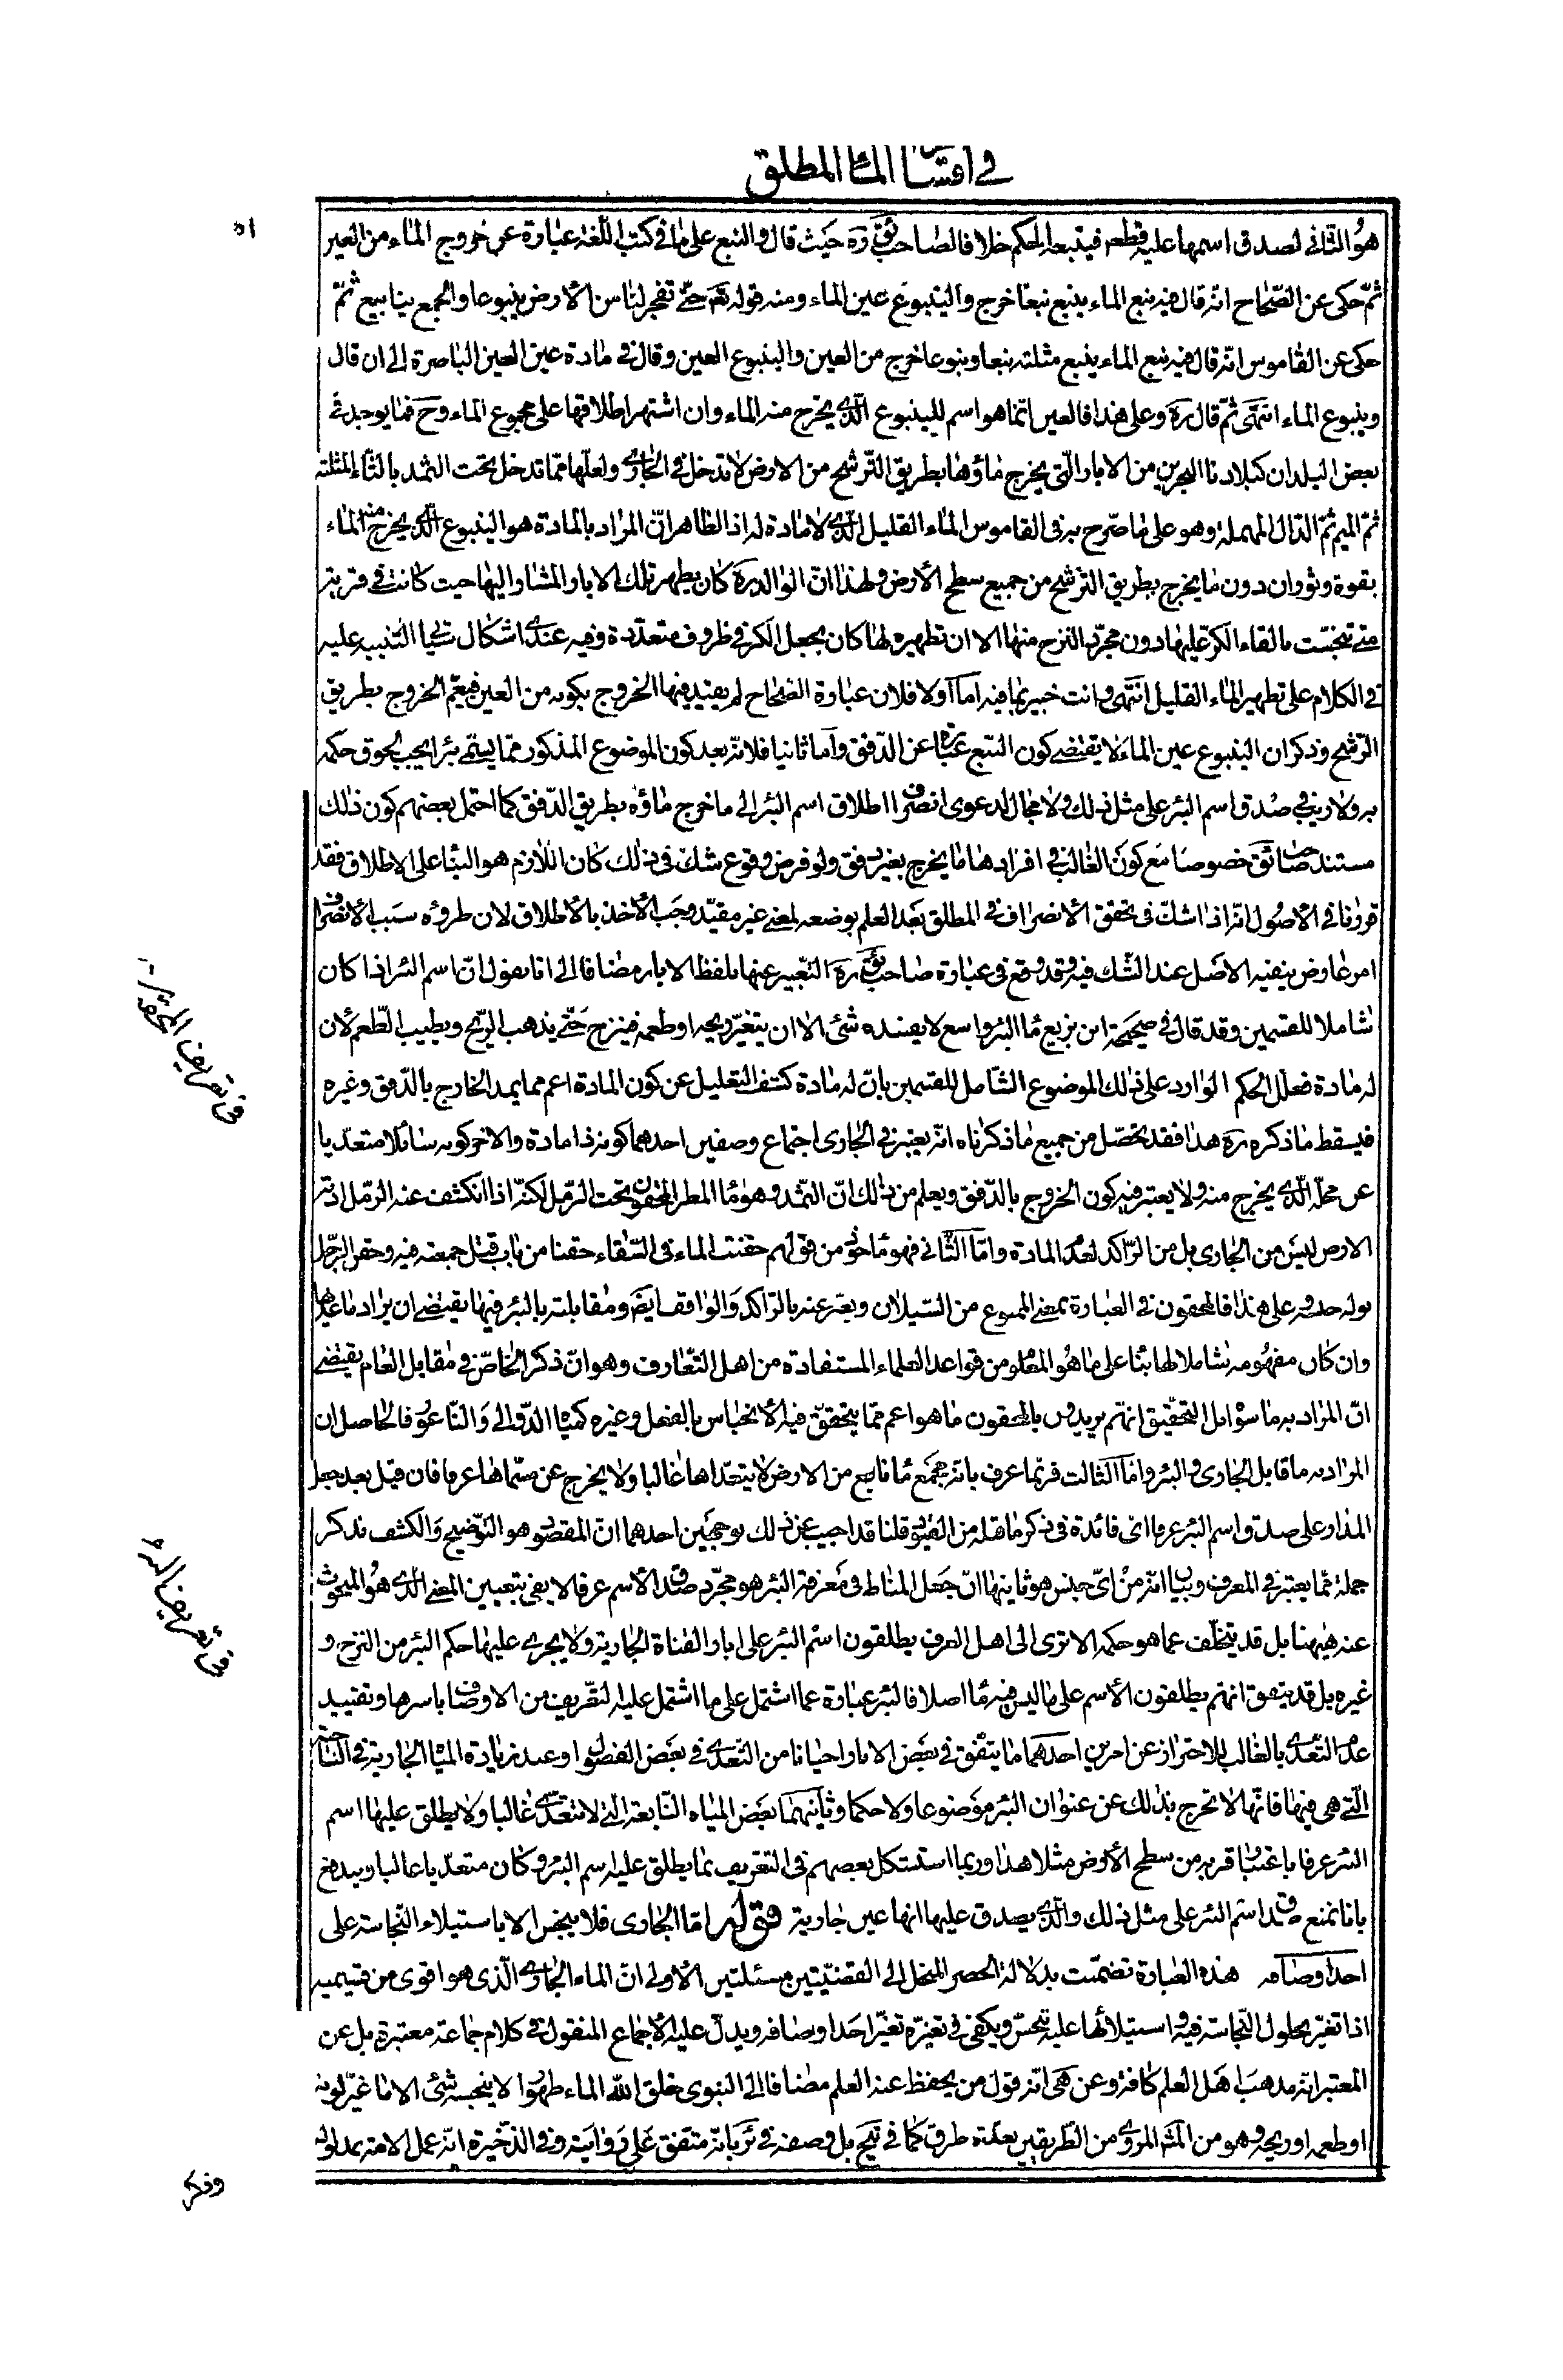 في اقسام الماء المطلق
٥١
هو الثاني لصدق اسمها عليه قطعا فيتبعه الحكم خلافا لصاحب ئق ره حيث قال والنبع على ما في كتب اللغة عبارة عن خروج الماء من العين
ثم حكى عن الصحاح انه قال فيه نبع الماء ينبع نبعا خرج والينبوع عين الماء ومنه قوله تعم حتى تفجر لنا من الأرض ينبوعا والجمع ينابيع ثم
حكى عن القاموس انه قال فيه نبع الماء ينبع مثلثة نبعا ونبوعا خرج من العين والينبوع العين وقال في مادة عين العين الباصرة إلى ان قال
وينبوع الماء انتهى ثم قال ره وعلى هذا فالعين انما هو اسم للينبوع الذي يخرج منه الماء وان اشتهر اطلاقها على مجموع الماء وح فما يوجد في
بعض البلدان كبلادنا البحرين من الابار التي يخرج ماؤها بطريق الترشح من الارض لا تدخل في الجاري ولعلها مما تدخل تحت الثمد بالثاء المثلثة
ثم الميم ثم الدال المهملة وهو على ما صرح به في القاموس الماء القليل الذي لا مادة له اذ الظاهر ان المراد بالمادة هو الينبوع الذي يخرج منه الماء
بقوة وثوران دون ما يخرج بطريق الترشح من جميع سطح الأرض ولهذا ان الوالد ره كان يطهر تلك الابار المشار اليها حيث كانت في قريته
متى تنجست بالقاء الكر عليها دون مجرد النزح منها الا ان تطهيره لها كان بجعل الكر في ظروف متعددة وفيه عندي اشكال سيجيء التنبيه عليه
في الكلام على تطهير الماء القليل انتهى وانت خبير بما فيه اما اولا فلان عبارة الصحاح لم يقيد فيها الخروج بكونه من العين فيعم الخروج بطريق
الرشح وذكر ان الينبوع عين الماء لا يقتضي كون النبع عبارة عن الدفق وأما ثانيا فلانه بعد كون الموضوع المذكور مما يسمى بئرا يجب لحوق حكمه
به ولا ريب في صدق اسم البئر على مثل ذلك ولا مجال لدعوى انصراف اطلاق اسم البئر الى ما خرج ماؤه بطريق الدفق كما احتمل بعضهم كون ذلك
مستند صاحب ئق خصوصا مع كون الغالب في افرادها ما يخرج بغير دفق ولو فرض وقوع شك في ذلك كان اللازم هو البناء على الاطلاق فقد
قررنا في الأصول انه اذا شك في تحقق الانصراف في المطلق بعد العلم بوضعه لمعنى غير مقيد وجب الأخذ بالأطلاق لان طروه سبب الانصراف
امر عارض ينفيه الاصل عند الشك فيه وقد وقع في عبارة صاحب ئق ره التعبير عنها بلفظ الابار مضافا الى انا نقول ان اسم البئر اذا كان
شاملا للقسمين وقد قال في صحيحة ابن بزيع ماء البئر واسع لا يفسده شئ الا ان يتغير ريحه او طعمه فينزح حتى يذهب الريح ويطيب الطعم لان
له مادة فعلل الحكم الوارد على ذلك الموضوع الشامل للقسمين بان له مادة كشف التعليل عن كون المادة اعم مما يمد الخارج بالدفق وغيره
فيسقط ما ذكره ره هذا فقد تحصل من جميع ما ذكرناه انه يعتبر في الجاري اجتماع وصفين احدهما كونه ذا مادة والاخر كونه سائلا متعديا
عن محله الذي يخرج منه ولا يعتبر فيه كون الخروج بالدفق ويعلم من ذلك ان الثمد وهو ماء المطر المحقون تحت الرمل لكنه اذا انكشف عنه الرمل ادته
الارض ليس من الجاري بل من الراكد لعدم المادة واما الثاني فهو مأخوذ من قولهم حقنت الماء في السقاء حقنا من باب قتل جمعته فيه وحقن الرجل
بوله حبسه وعلى هذا فالمحقون في العبارة بمعنى الممنوع من السيلان ويعبر عنه بالراكد والواقف ايضا ومقابلته بالبئر فيها يقتضي ان يراد ما عداها
وان كان مفهومه شاملا لها بناء على ما هو المعلوم من قواعد العلماء المستفادة من اهل التعارف وهو ان ذكر الخاص في مقابل العام يقتضي
ان المراد به ما سواه بل التحقيق انهم يريدون بالمحقون ما هو اعم مما يتحقق فيه الانحباس بالفعل وغيره كمياه الدوالي والنواعير فالحاصل ان
المراد به ما قابل الجاري والبئر واما الثالث فربما عرف بانه مجمع ماء نابع من الارض لا يتعداها غالبا ولا يخرج عن مسماها عرفا فان قيل بعد جعل
المدار على صدق اسم البئر عرفا اي فائدة في ذكر ما قبله من القيود قلنا قد اجيب عن ذلك بوجهين احدهما ان المقصود هو التوضيح والكشف بذكر
جملة مما يعتبر في المعرف وبيان انه من اي جنس هو ثانيهما ان جعل المناط في معرفة البئر هو مجرد صدق الأسم عرفا لا يفي بتعيين المعنى الذي هو المبحوث
عنه هيهنا بل قد يتخلف عما هو حكمه الا ترى الى اهل العرف يطلقون اسم البئر على ابار القناة الجارية ولا يجري عليها حكم البئر من النزح و
غيره بل قد يتفق انهم يطلقون الأسم على ما ليس فيه ماء اصلا فالبئر عبارة عما اشتمل على ما اشتمل عليه التعريف من الاوصاف باسرها وتقييد
عدم التعدي بالغالب للاحتراز عن امرين احدهما ما يتفق في بعض الابار احيانا من التعدي في بعض الفصول او عند زيادة المياه الجارية في الناحية
التي هي فيها فانها لا تخرج بذلك عن عنوان البئر موضوعا ولا حكما وثانيهما بعض المياه النابعة التي لا تتعدى غالبا ولا يطلق عليها اسم
البئر عرفا باعتبار قربه من سطح الأرض مثلا هذا وربما استشكل بعضهم في التعريف بما يطلق عليه اسم البئر وكان متعديا غالبا ويدفع
بانا نمنع صدق اسم البئر على مثل ذلك والذي يصدق عليها انها عين جارية قوله اما الجاري فلا ينجس الا باستيلاء النجاسة على
احد اوصافه هذه العبارة تضمنت بدلالة الحصر المنحل الى القضيتين مسئلتين الأولى ان الماء الجاري الذي هو اقوى من قسيميه
اذا تغير بحلول النجاسة فيه واستيلائها عليه تنجس ويكفي في تغيره تغير احد اوصافه ويدل عليه الإجماع المنقول في كلام جماعة معتبرة بل عن
المعتبر انه مذهب اهل العلم كافة وعن هى انه قول من يحفظ عنه العلم مضافا الى النبوي خلق الله الماء طهورا لا ينجسه شئ الا ما غير لونه
او طعمه او ريحه وهو من المروي من الطريقين بعدة طرق كما في بل وصفه في ئر بانه متفق على روايته وفي الذخيرة انه عمل الامة بمدلوله
في تعريف المحقون
في تعريف البئر